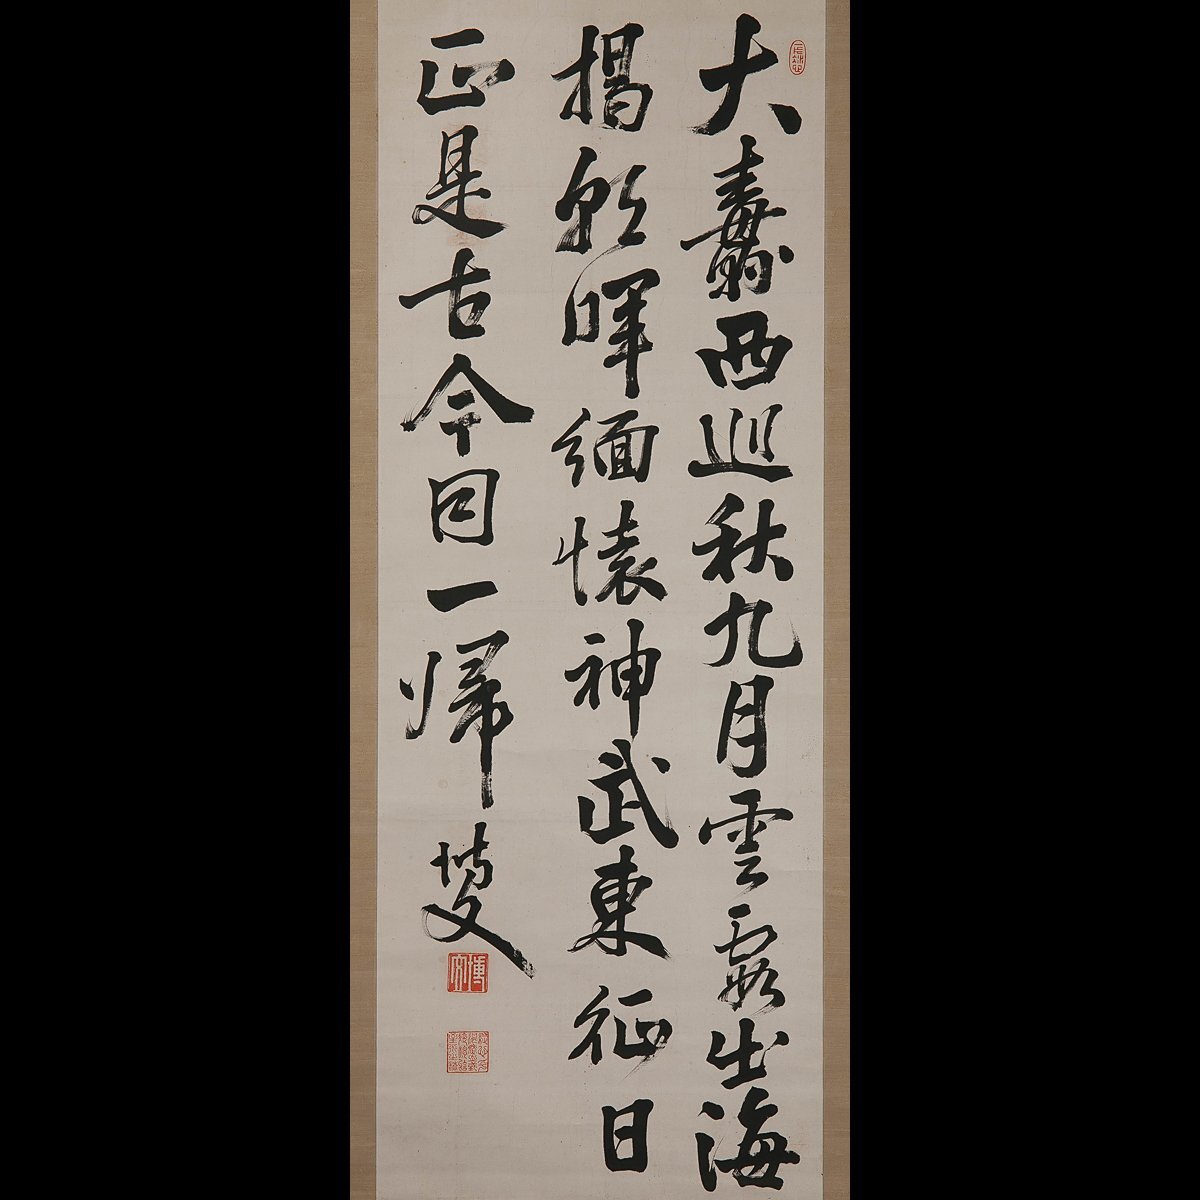 大纛西巡秋九月雲霞出海
揭朝暉緬懐神武東征日
正是古今同一帰
博文